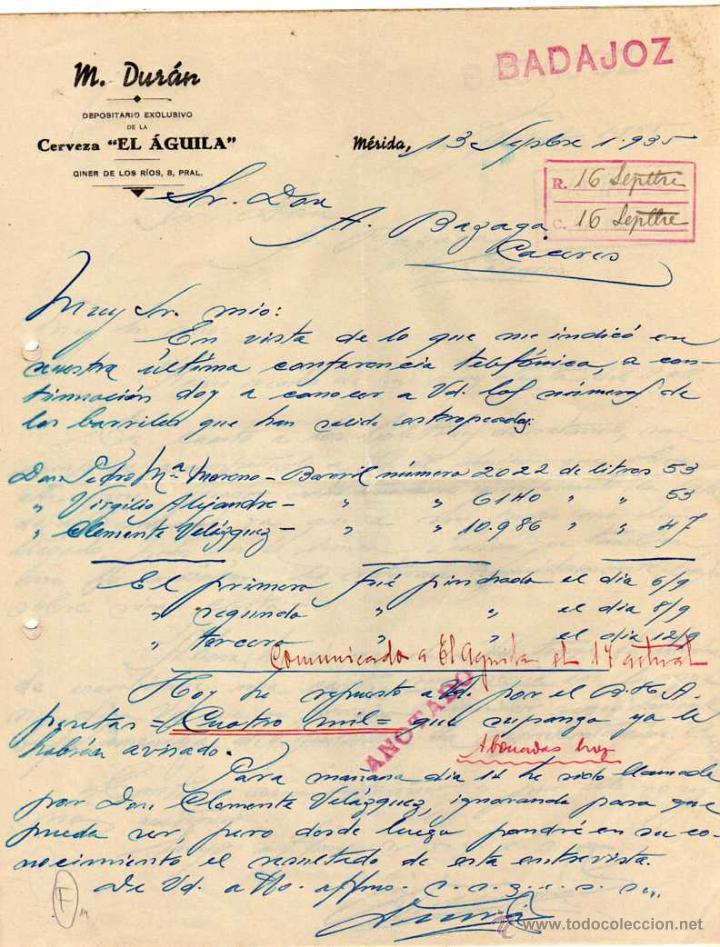 BADAJOZ
M. Durán
DEPOSITARIO EXCLUSIVO
DE LA
Cerveza "EL ÁGUILA"
GINER DE LOS RÍOS, 8, PRAL.
Mérida, 13 Sepbre 1.935
R. 16 Septbre
C. 16 Septbre
Sr. Don
A. Bazaga
Caceres
Muy Sr. mio:
En vista de lo que me indicó en
nuestra última conferencia telefónica, a con-
tinuación doy a conocer a Vd. los números de
los barriles que han salido estropeados:
Don Pedro Mª Moreno - Barril número 2022 de litros 53
" Virgilio Alejandre - " " 6140 " " 53
" Clemente Velázquez - " " 10.986 " " 47
El primero fué pinchado el dia 6/9
" segundo " " el dia 8/9
" tercero " " el dia 12/9
Comunicado a El Aguila el 17 actual
Hoy he repuesto a Vd. por el B.H.A.
pesetas = Cuatro mil = que supongo ya le
habrán avisado.
Abonadas hoy
ANOTADO
Para mañana dia 14 he sido llamado
por Don Clemente Velázquez, ignorando para que
pueda ser, pero desde luego pondré en su co-
nocimiento el resultado de esta entrevista.
De Vd. atto. affmo. s.s.q.e.s.m.
F
www.todocoleccion.net